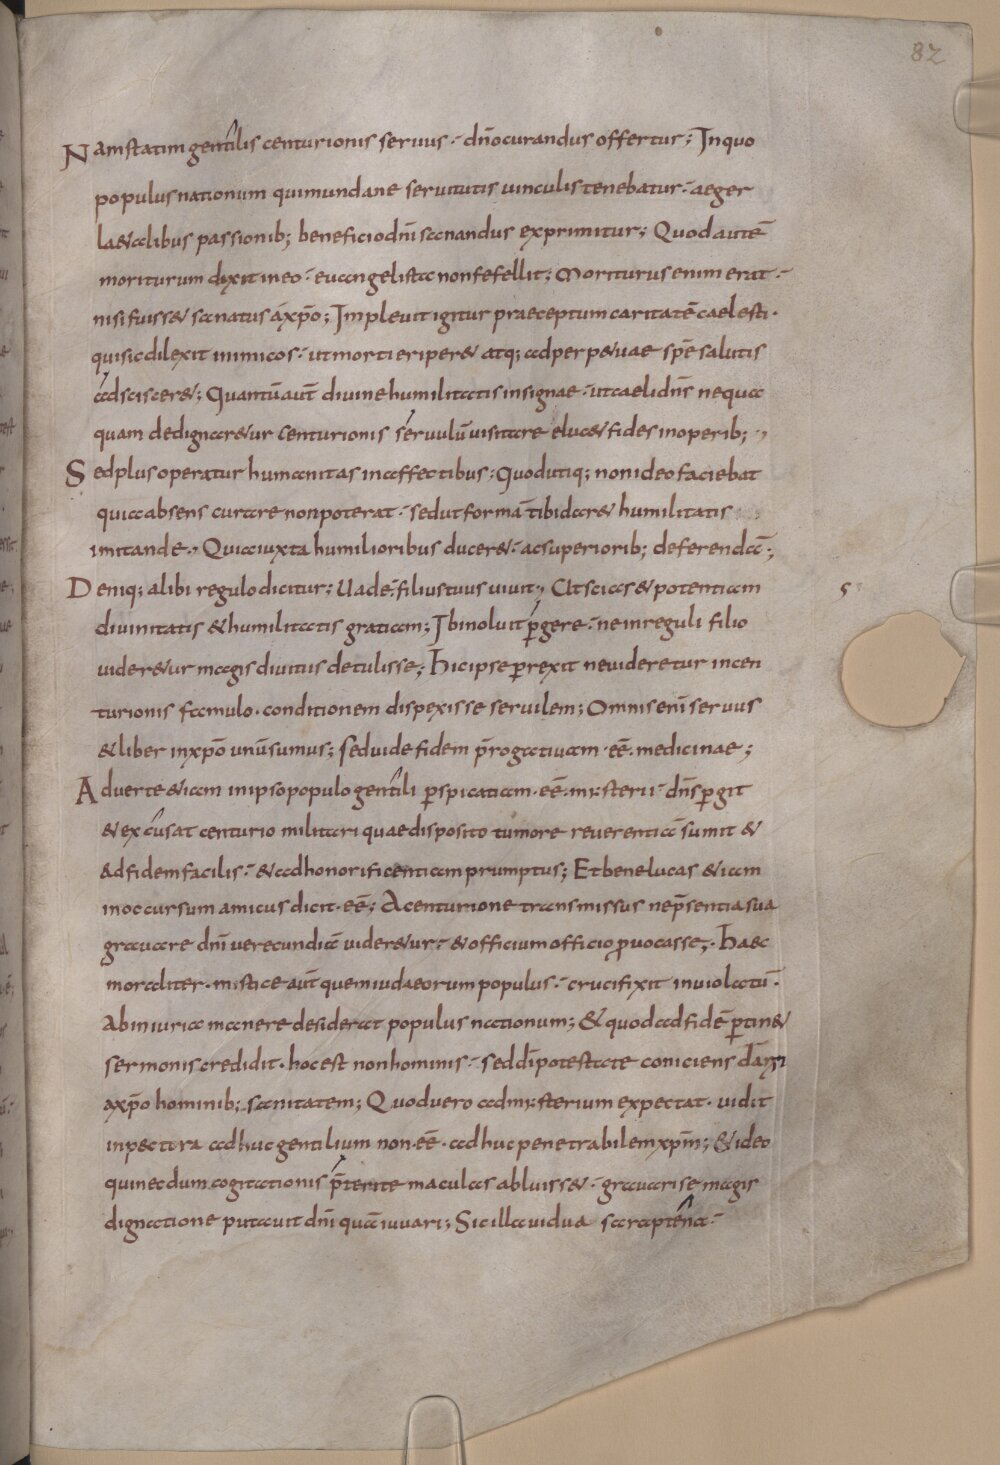 82
Nam statim gentilis centurionis seruus · dño curandus offertus; In quo
populus nationum qui mundane seruitutis uinculis tenebatur · aeger
laetalibus passionib; beneficio dñi sanandus exprimitur; Quod autē
moriturum dixit in eo · euangelista non fefellit; Moriturus enim erat ·
nisi fuisset sanatus a xpo; Impleuit igitur praeceptum caritatē caelesti ·
qui sic dilexit inimicos · ut morti eriperet atq; ad perpetuae spē salutis
adscisceret; Quantū aut diuine humilitatis insignae · ut caeli dñs nequa
quam dedignaretur centurionis seruulū uisitare elucet fides in operib;
Sed plus operatur humanitas in affectibus · Quod utiq; non ideo faciebat
quia absens curare non poterat · sed ut formā tibi daret humilitatis
imitande · Qui a iuxta humilioribus duceret · ac superiorib; deferendā;
Deniq; alibi regulo dicitur; Uade · filius tuus uiuit · Ut scias et potentiam
diuinitatis et humilitatis gratiam; Ibi noluit pgere · ne in reguli filio
uideretur magis diuitus detulisse; Hic ipse prexit ne uideretur in cen
turionis famulo · conditionem dispexisse seruilem; Omnis enī seruus
et liber in xpo unū sumus; sed uide fidem prrogatiuam · eē · medicinae;
Aduerte etiam in ipso populo gentili pspicaticam · eē · mysterii · dñs pgit
et excusat centurio militari quae disposito tumore reuerentiā sumit et
ad fidem facilis · et ad honorificenticam prumptus; Et bene lucas etiam
in occursum amicus dicit · eē; A centurione transmissus ne psentia sua
grauare dñi uerecundiā uideretur · et officium officio puocasse; Haec
moraliter · mistice aut quem iudaeorum populus · crucifixit inuiolatū ·
Ab iniuria manere desiderat populus nationum; Et quod ad fidē ptinet
sermonis credidit · hoc est non hominis · sed dī potestate coniciens dari
a xpo hominib; sanitatem; Quod uero ad mysterium expectat · uidit
in pectora adhuc gentilium non · eē · adhuc penetrabilem xpm; et ideo
qui necdum cogitationis pterite maculas abluisset · grauari se magis
dignatione putauit dñi quā iuuari; Sic illa uidua saraptena ·